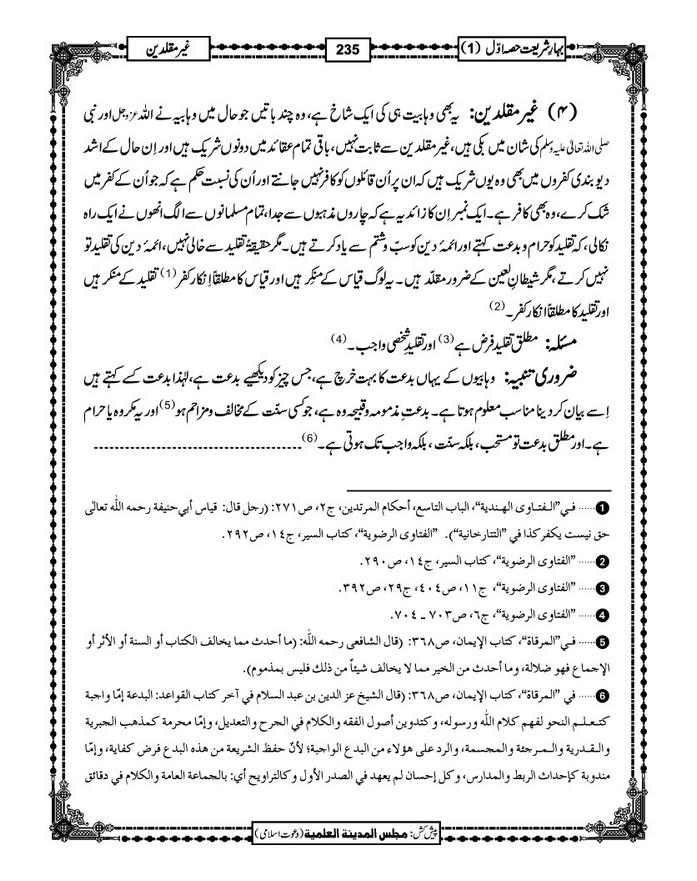 بہارِ شریعت حصہ اوّل (1)
235
غیر مقلدین
(۴) غیر مقلدین: یہ بھی وہابیت ہی کی ایک شاخ ہے، وہ چند باتیں جو حال میں وہابیہ نے اللہ عزوجل اور نبی
صلی اللہ تعالیٰ علیہ وسلم کی شان میں بکی ہیں، غیر مقلدین سے ثابت نہیں، باقی تمام عقائد میں دونوں شریک ہیں اور اِن حال کے اشد
دیوبندی کفروں میں بھی وہ یوں شریک ہیں کہ ان پر اُن قائلوں کو کافر نہیں جانتے اور اُن کی نسبت حکم ہے کہ جو اُن کے کفر میں
شک کرے، وہ بھی کافر ہے۔ ایک نمبر اِن کا زائد یہ ہے کہ چاروں مذہبوں سے جدا، تمام مسلمانوں سے الگ انھوں نے ایک راہ
نکالی، کہ تقلید کو حرام و بدعت کہتے اور ائمۂ دین کو سبّ و شتم سے یاد کرتے ہیں۔ مگر حقیقۃً تقلید سے خالی نہیں، ائمۂ دین کی تقلید تو
نہیں کرتے، مگر شیطانِ لعین کے ضرور مقلّد ہیں۔ یہ لوگ قیاس کے منکِر ہیں اور قیاس کا مطلقاً اِنکار کفر (1) تقلید کے منکر ہیں
اور تقلید کا مطلقاً انکار کفر۔ (2)
مسئلہ: مطلق تقلید فرض ہے (3) اور تقلیدِ شخصی واجب۔ (4)
ضروری تنبیہ: وہابیوں کے یہاں بدعت کا بہت خرچ ہے، جس چیز کو دیکھیے بدعت ہے، لہٰذا بدعت کسے کہتے ہیں
اِسے بیان کر دینا مناسب معلوم ہوتا ہے۔ بدعتِ مذمومہ و قبیحہ وہ ہے، جو کسی سنّت کے مخالف و مزاحم ہو (5) اور یہ مکروہ یا حرام
ہے۔ اور مطلق بدعت تو مستحب، بلکہ سنّت، بلکہ واجب تک ہوتی ہے۔ (6)
1 ...... فی "الفتاوى الهندية"، الباب التاسع، أحكام المرتدين، ج۲، ص۲۷۱: (رجل قال: قياس أبي حنيفة رحمه الله تعالى
حق نيست يكفر كذا في "التتارخانية"). "الفتاوى الرضوية"، كتاب السير، ج۱٤، ص۲۹۲.
2 ...... "الفتاوى الرضوية"، كتاب السير، ج۱٤، ص۲۹۰.
3 ...... "الفتاوى الرضوية"، ج۱۱، ص٤۰٤، ج۲۹، ص۳۹۲.
4 ...... "الفتاوى الرضوية"، ج٦، ص۷۰۳ ـ ۷۰٤.
5 ...... في "المرقاة"، كتاب الإيمان، ص۳٦۸: (قال الشافعي رحمه الله: (ما أحدث مما يخالف الكتاب أو السنة أو الأثر أو
الإجماع فهو ضلالة، وما أحدث من الخير مما لا يخالف شيئاً من ذلك فليس بمذموم).
6 ...... في "المرقاة"، كتاب الإيمان، ص۳٦۸: (قال الشيخ عز الدين بن عبد السلام في آخر كتاب القواعد: البدعة إمّا واجبة
كتعلم النحو لفهم كلام الله ورسوله، وكتدوين أصول الفقه والكلام في الجرح والتعديل، وإمّا محرمة كمذهب الجبرية
والقدرية والمرجئة والمجسمة، والرد على هؤلاء من البدع الواجبة؛ لأنّ حفظ الشريعة من هذه البدع فرض كفاية، وإمّا
مندوبة كإحداث الربط والمدارس، وكل إحسان لم يعهد في الصدر الأول وكالتراويح أي: بالجماعة العامة والكلام في دقائق
پیش کش: مجلس المدینة العلمیة (دعوت اسلامی)